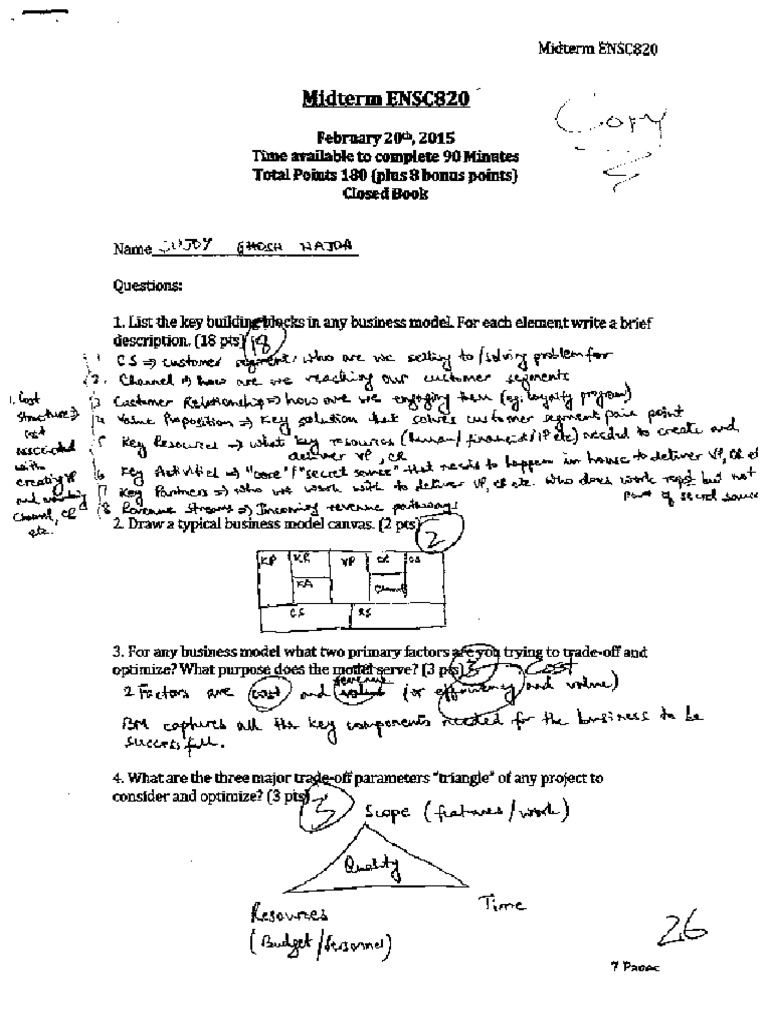 Midterm ENSC820
Midterm ENSC820
Copy
February 20th, 2015
Time available to complete 90 Minutes
Total Points 180 (plus 8 bonus points)
Closed Book
Name SUJOY GHOSH HAJRA
Questions:
1. List the key building blocks in any business model. For each element write a brief
description. (18 pts) 18
1. CS => customer segment: who are we selling to/solving problem for
2. Channel => how are we reaching our customer segments
3 Customer Relationship => how are we engaging them (eg: loyalty program)
4 Value Proposition => Key solution that solves customer segment pain point
5 Key Resources => what key resources (human/financial/IP etc) needed to create and
deliver VP, CR
6 Key Activities => "core"/"secret source" that needs to happen in house to deliver VP, CR etc
7 Key Partners => who we work with to deliver VP, CR etc. who does work reqd but not
part of secret source
8 Revenue Streams => Incoming revenue pathways
1. Cost
structure =>
cost
associated
with
creating VP
and
Channel, CR
etc.
2. Draw a typical business model canvas. (2 pts) 2
KP KR VP CR CS
KA Channel
CS RS
3. For any business model what two primary factors are you trying to trade-off and
optimize? What purpose does the model serve? (3 pts) 3 cost
revenue
2 Factors are cost and value (or efficiency and value)
BM captures all the key components needed for the business to be
successful.
4. What are the three major trade-off parameters "triangle" of any project to
consider and optimize? (3 pts) 3
Scope (features/work)
Quality
Resources Time
(Budget/Personnel)
26
7 Pages